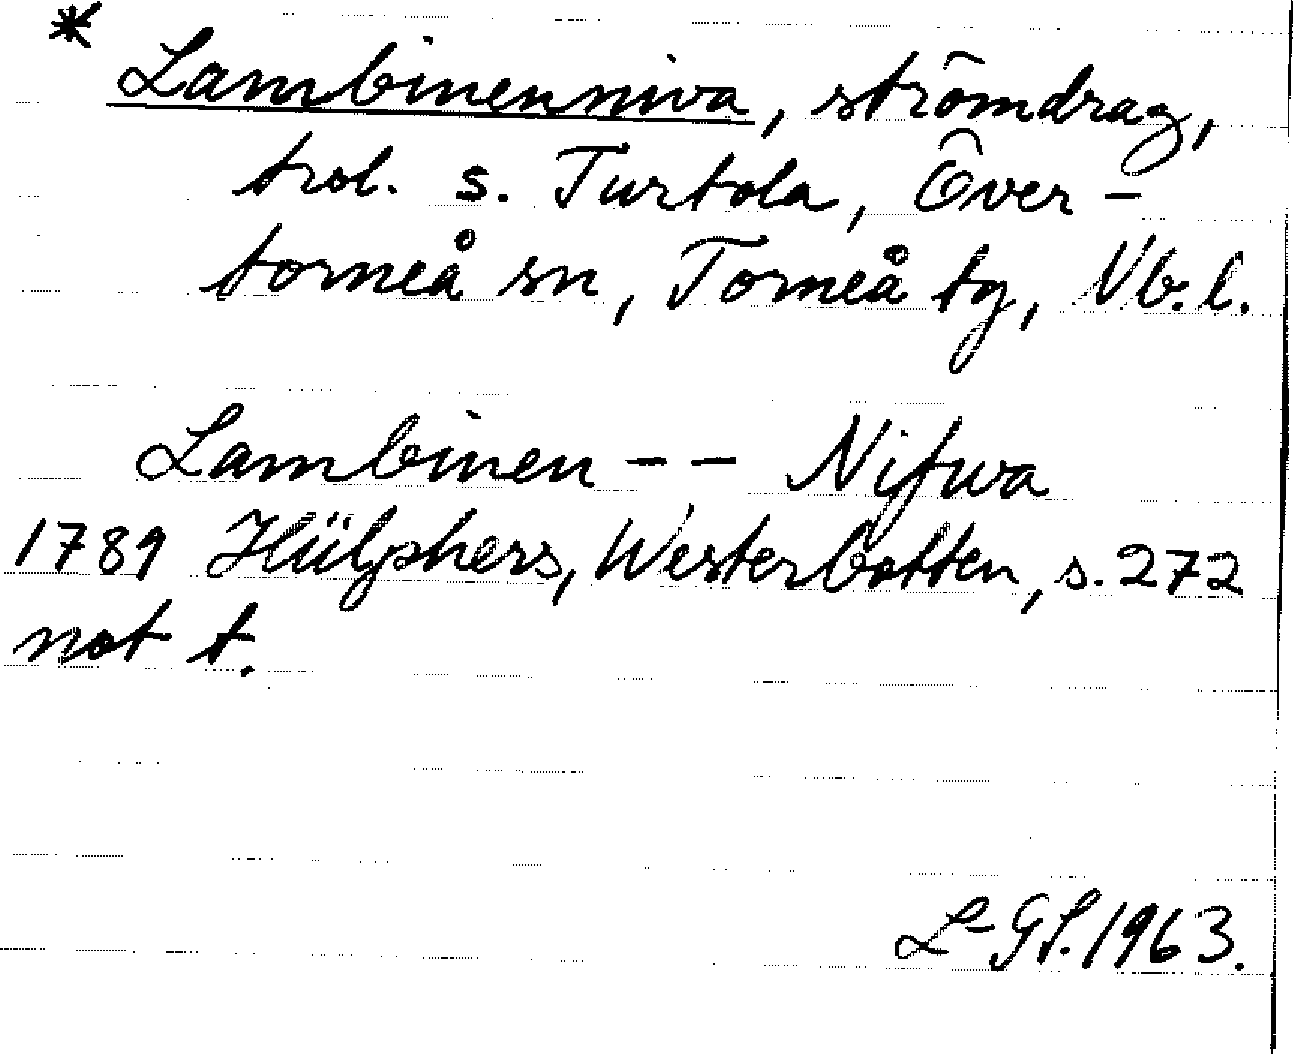 * Lambinenniva, strömdrag,
trol. s. Turtola, Över-
torneå sn, Torneå tg, Vb. l.
Lambinen -- Nifwa
1789 Hülphers, Westerbotten, s. 272
not t.
L-GL. 1963.